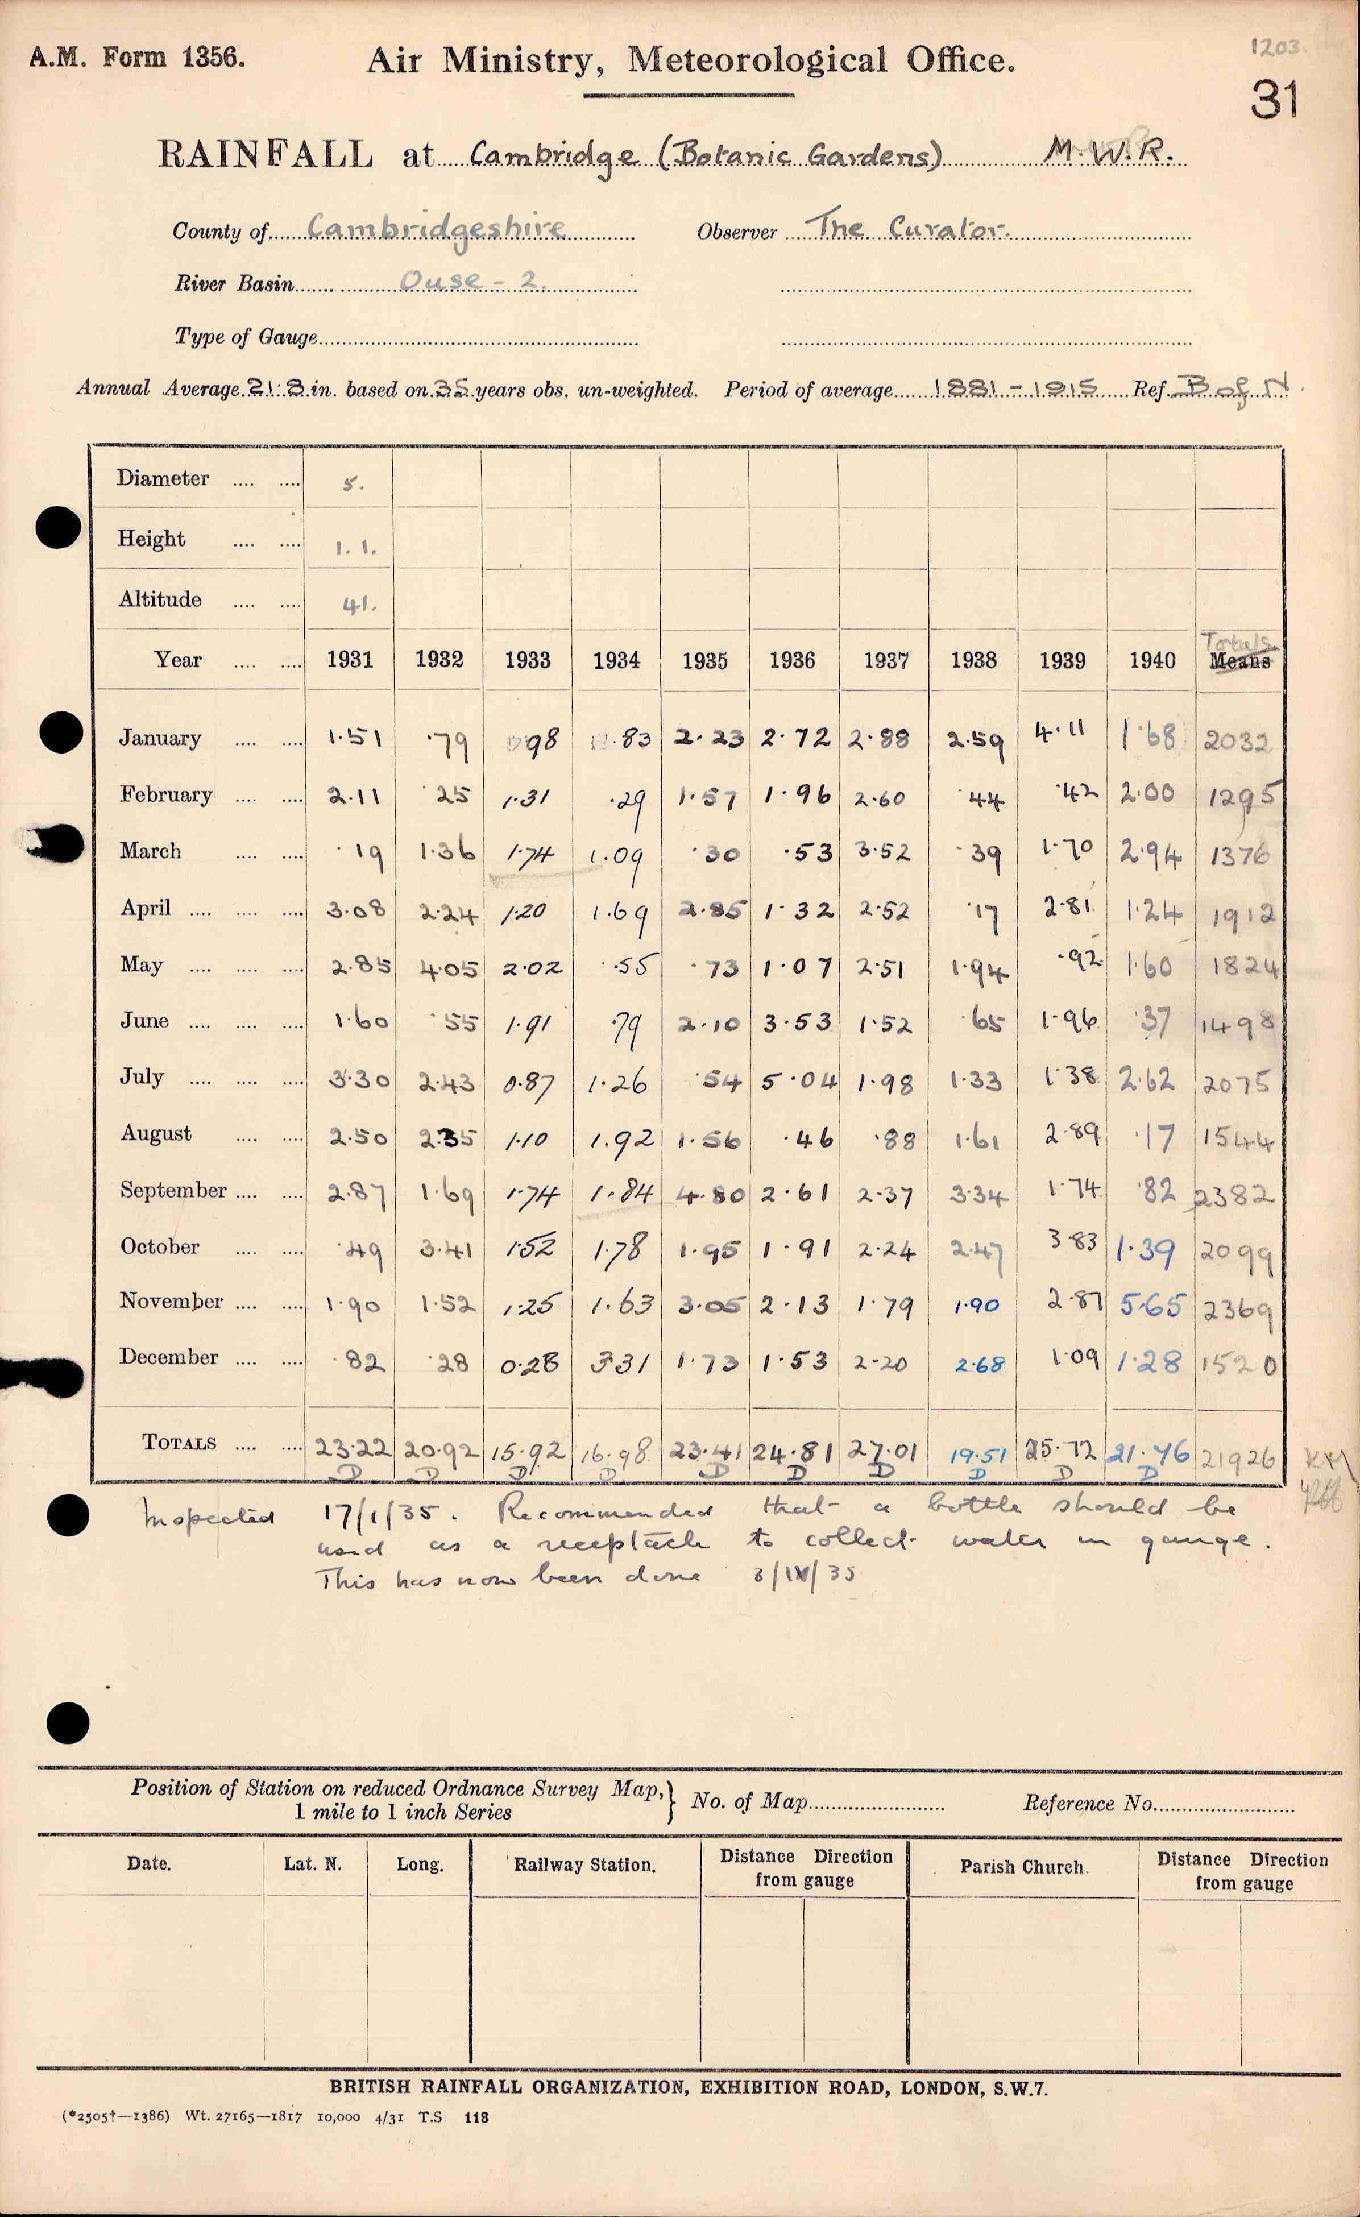 A.M. Form 1356. Air Ministry, Meteorological Office. 1203.
31
RAINFALL at Cambridge (Botanic Gardens) M.W.R.
County of Cambridgeshire Observer The Curator.
River Basin Ouse - 2.
Type of Gauge
Annual Average 21.8 in. based on 35 years obs. un-weighted. Period of average 1881-1915 Ref. B of N.
Diameter 5.
Height 1.1.
Altitude 41.
Totals
Year 1931 1932 1933 1934 1935 1936 1937 1938 1939 1940 Means
January 1.51 .79 .98 .83 2.23 2.72 2.88 2.59 4.11 1.68 2032
February 2.11 .25 1.31 .29 1.57 1.96 2.60 .44 .42 2.00 1295
March .19 1.36 1.74 1.09 .30 .53 3.52 .39 1.70 2.94 1376
April 3.08 2.24 1.20 1.69 2.85 1.32 2.52 .17 2.81 1.24 1912
May 2.85 4.05 2.02 .55 .73 1.07 2.51 1.94 .92 1.60 1824
June 1.60 .55 1.91 .79 2.10 3.53 1.52 .65 1.96 .37 1498
July 3.30 2.43 0.87 1.26 .54 5.04 1.98 1.33 1.38 2.62 2075
August 2.50 2.35 1.10 1.92 1.56 .46 .88 1.61 2.89 .17 1544
September 2.87 1.69 1.74 1.84 4.80 2.61 2.37 3.34 1.74 .82 2382
October .49 3.41 1.52 1.78 1.95 1.91 2.24 2.47 3.83 1.39 2099
November 1.90 1.52 1.25 1.63 3.05 2.13 1.79 1.90 2.87 5.65 2369
December .82 .28 0.28 3.31 1.73 1.53 2.20 2.68 1.09 1.28 1520
TOTALS 23.22 20.92 15.92 16.98 23.41 24.81 27.01 19.51 25.72 21.76 21926
D D D D D D D D D D
Inspected 17/1/35. Recommended that a bottle should be
used as a receptacle to collect water in gauge.
This has now been done 3/IV/35
Position of Station on reduced Ordnance Survey Map,} No. of Map Reference No.
1 mile to 1 inch Series
Date. Lat. N. Long. Railway Station. Distance Direction from gauge Parish Church. Distance Direction from gauge
BRITISH RAINFALL ORGANIZATION, EXHIBITION ROAD, LONDON, S.W.7.
(*2505†—1386) Wt. 27165—1817 10,000 4/31 T.S 118